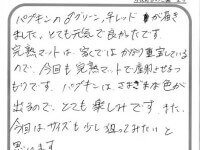 パプキンの♂グリーン、♀レッドが届き
ました。とても元気で良かたです。
完熟マットは 安くては かなり重宝している
ので、今回も完熟マットで産卵させる
つもりです。パプキンは さまざまな色が
出るので、とても楽しみです。また、
今回はサイズも少し狙ってみたいと
思います